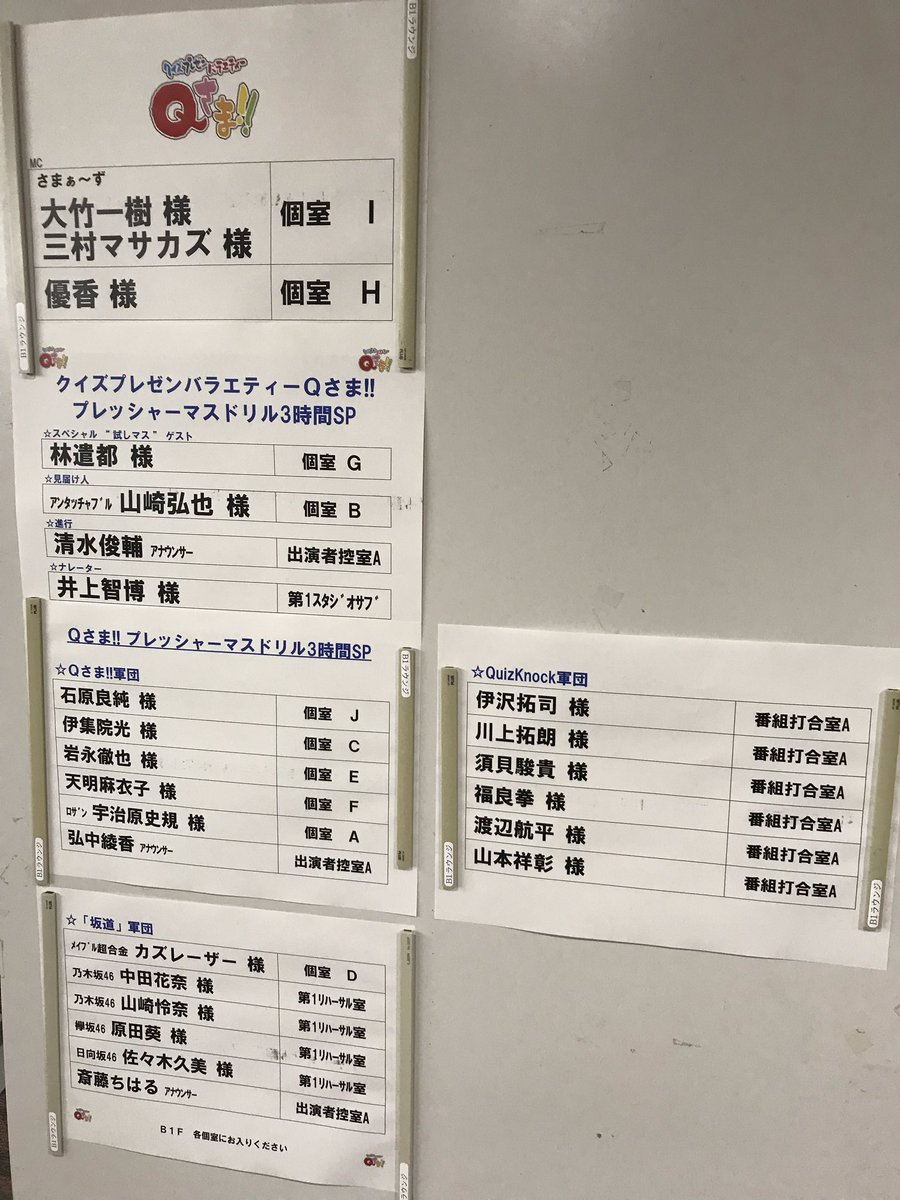 B1ラウンジ
クイズプレゼンバラエティー
Qさま!!
MC
さまぁ～ず
大竹一樹 様
三村マサカズ 様
個室 I
優香 様
個室 H
B1ラウンジ
クイズプレゼンバラエティーQさま!!
プレッシャーマスドリル3時間SP
☆スペシャル “試しマス” ゲスト
林遣都 様
個室 G
☆見届け人
アンタッチャブル 山崎弘也 様
個室 B
☆進行
清水俊輔 アナウンサー
出演者控室A
☆ナレーター
井上智博 様
第1スタジオサブ
Qさま!! プレッシャーマスドリル3時間SP
B1ラウンジ
☆Qさま!!軍団
石原良純 様
個室 J
伊集院光 様
個室 C
岩永徹也 様
個室 E
天明麻衣子 様
個室 F
ロザン 宇治原史規 様
個室 A
弘中綾香 アナウンサー
出演者控室A
B1ラウンジ
☆QuizKnock軍団
伊沢拓司 様
番組打合室A
川上拓朗 様
番組打合室A
須貝駿貴 様
番組打合室A
福良拳 様
番組打合室A
渡辺航平 様
番組打合室A
山本祥彰 様
番組打合室A
B1ラウンジ
B1ラウンジ
☆「坂道」軍団
メイプル超合金 カズレーザー 様
個室 D
乃木坂46 中田花奈 様
第1リハーサル室
乃木坂46 山崎怜奈 様
第1リハーサル室
欅坂46 原田葵 様
第1リハーサル室
日向坂46 佐々木久美 様
第1リハーサル室
斎藤ちはる アナウンサー
出演者控室A
B1F 各個室にお入りください
B1ラウンジ
Qさま!!